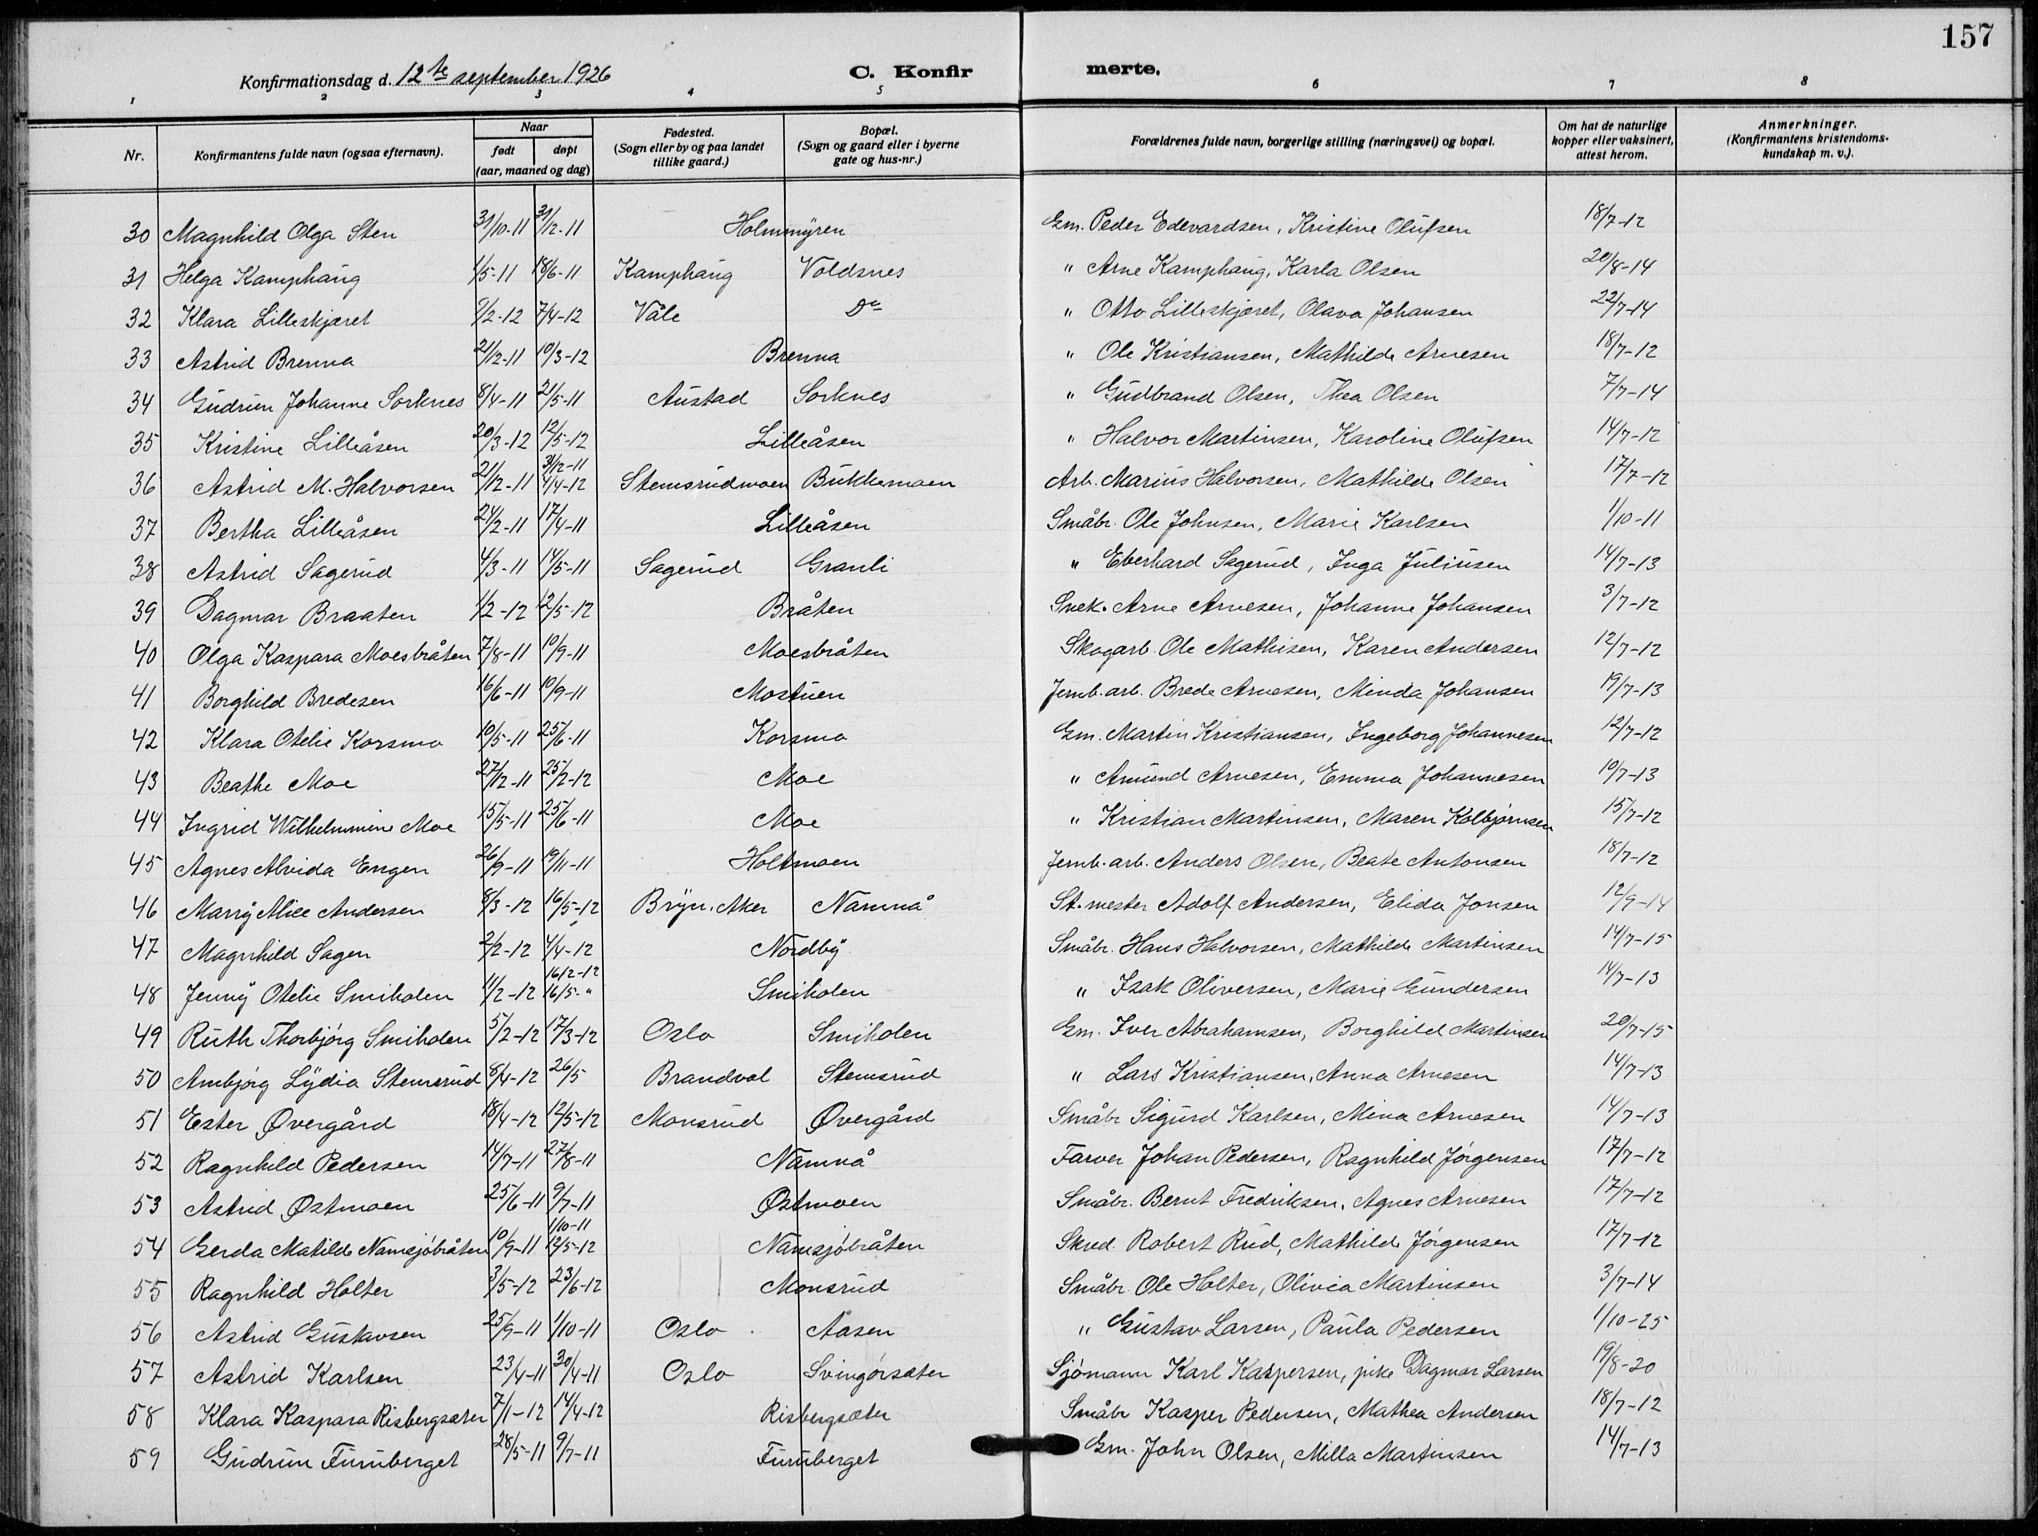 157
Konfirmationsdag d. 12te september 1926 C. Konfirmerte.
1 2 3 4 5 6 7 8
Nr. Konfirmantens fulde navn (ogsaa efternavn). Naar født døpt (aar, maaned og dag) Fødested. (Sogn eller by og paa landet tillike gaard.) Bopæl. (Sogn og gaard eller i byerne gate og hus-nr.) Forældrenes fulde navn, borgerlige stilling (næringsvei) og bopæl. Om hat de naturlige kopper eller vaksinert, attest herom. Anmerkninger. (Konfirmantens kristendomskundskap m. v.).
30 Magnhild Olga Sten 31/10-11 31/12-11 Holmmyren Gm. Peder Edevardsen, Kristine Olufsen 18/7-12
31 Helga Kamphaug 1/5-11 18/6-11 Kamphaug Voldsnes " Arne Kamphaug, Karla Olsen 20/8-14
32 Klara Lilleskjæret 9/2-12 7/4-12 Våle Do " Otto Lilleskjæret, Olava Johansen 22/7-14
33 Astrid Brenna 21/12-11 10/3-12 Brenna " Ole Kristiansen, Mathilde Arnesen 18/7-12
34 Gudrun Johanne Sorknes 8/4-11 21/5-11 Austad Sorknes " Gudbrand Olsen, Thea Olsen 7/7-14
35 Kristine Lilleåsen 20/3-12 12/5-12 Lilleåsen " Halvor Martinsen, Karoline Olufsen 14/7-12
36 Astrid M. Halvorsen 21/12-11 31/12-11 4/4-12 Stemsrudmoen Bukkemoen Arb. Marius Halvorsen, Mathilde Olsen 17/7-12
37 Bertha Lilleåsen 24/2-11 17/4-11 Lilleåsen Småbr. Ole Johnsen, Marie Karlsen 1/10-11
38 Astrid Sagerud 4/3-11 14/5-11 Sagerud Granli " Eberhard Sagerud, Inga Juliusen 14/7-13
39 Dagmar Braaten 1/2-12 12/5-12 Bråten Snek. Arne Arnesen, Johanne Johansen 3/7-12
40 Olga Kaspara Moesbråten 7/8-11 10/9-11 Moesbråten Skogarb. Ole Mathisen, Karen Andersen 12/7-12
41 Borghild Bredesen 16/6-11 10/9-11 Mostuen Jernb. arb. Brede Arnesen, Minda Johansen 19/7-13
42 Klara Otelie Korsmo 10/5-11 25/6-11 Korsmo Gm. Martin Kristiansen, Ingeborg Johannesen 12/7-12
43 Beathe Moe 27/12-11 25/2-12 Moe " Amund Arnesen, Emma Johannesen 10/7-13
44 Ingrid Wilhelmmine Moe 15/5-11 25/6-11 Moe " Kristian Martinsen, Maren Kolbjørnsen 15/7-12
45 Agnes Alvida Engen 26/9-11 19/11-11 Holtmoen Jernb. arb. Anders Olsen, Beate Antonsen 18/7-12
46 Marry Alice Andersen 8/3-12 16/5-12 Bryn. Aker Namnå St. mester Adolf Andersen, Elida Jonsen 12/9-14
47 Magnhild Sagen 2/2-12 4/4-12 Nordby Småbr. Hans Halvorsen, Mathilde Martinsen 14/7-15
48 Jenny Otelie Smiholen 11/2-12 16/2-12 16/5-" Smiholen " Isak Oliversen, Marie Gundersen 14/7-13
49 Ruth Thorbjørg Smiholen 5/2-12 17/3-12 Oslo Smiholen Gm. Iver Abrahamsen, Borghild Martinsen 20/7-15
50 Ambjørg Lydia Stemsrud 8/4-12 26/5 Brandval Stemsrud " Lars Kristiansen, Anna Arnesen 14/7-13
51 Ester Øvergård 18/4-12 12/5-12 Monsrud Øvergård Småbr Sigurd Karlsen, Mina Arnesen 14/7-13
52 Ragnhild Pedersen 14/7-11 27/8-11 Namnå Farver Johan Pedersen, Ragnhild Jørgensen 17/7-12
53 Astrid Østmoen 25/6-11 9/7-11 Østmoen Småbr. Bernt Fredriksen, Agnes Arnesen 17/7-12
54 Gerda Matilde Namsjøbråten 10/9-11 1/10-11 12/5-12 Namsjøbråten Skred. Robert Rud, Mathilde Jørgensen 17/7-12
55 Ragnhild Holter 3/5-12 23/6-12 Monsrud Småbr. Ole Holter, Olivia Martinsen 3/7-14
56 Astrid Gustavsen 25/9-11 1/10-11 Oslo Aasen " Gustav Larsen, Paula Pedersen 1/10-25
57 Astrid Karlsen 23/4-11 30/4-11 Oslo Svingørsæter Sjømann Karl Kaspersen, pike Dagmar Larsen 19/8-20
58 Klara Kaspara Risbergsæter 7/1-12 14/4-12 Risbergsæter Småbr Kasper Pedersen, Mathea Andersen 18/7-12
59 Gudrun Furuberget 28/5-11 9/7-11 Furuberget Gm. John Olsen, Milla Martinsen 14/7-13